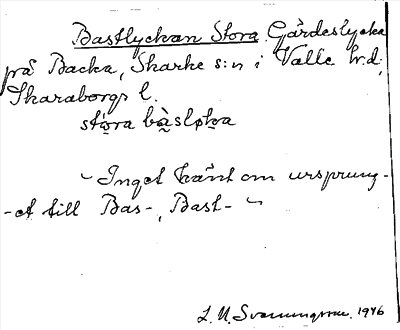 Bastlyckan Stora Gärdeslycka
på Backa, Skarke s:n i Valle hrd,
Skaraborgs l.
stora bàsløka
"Inget känt om ursprung-
-et till Bas-, Bast-"
L. M. Svenungsson. 1946